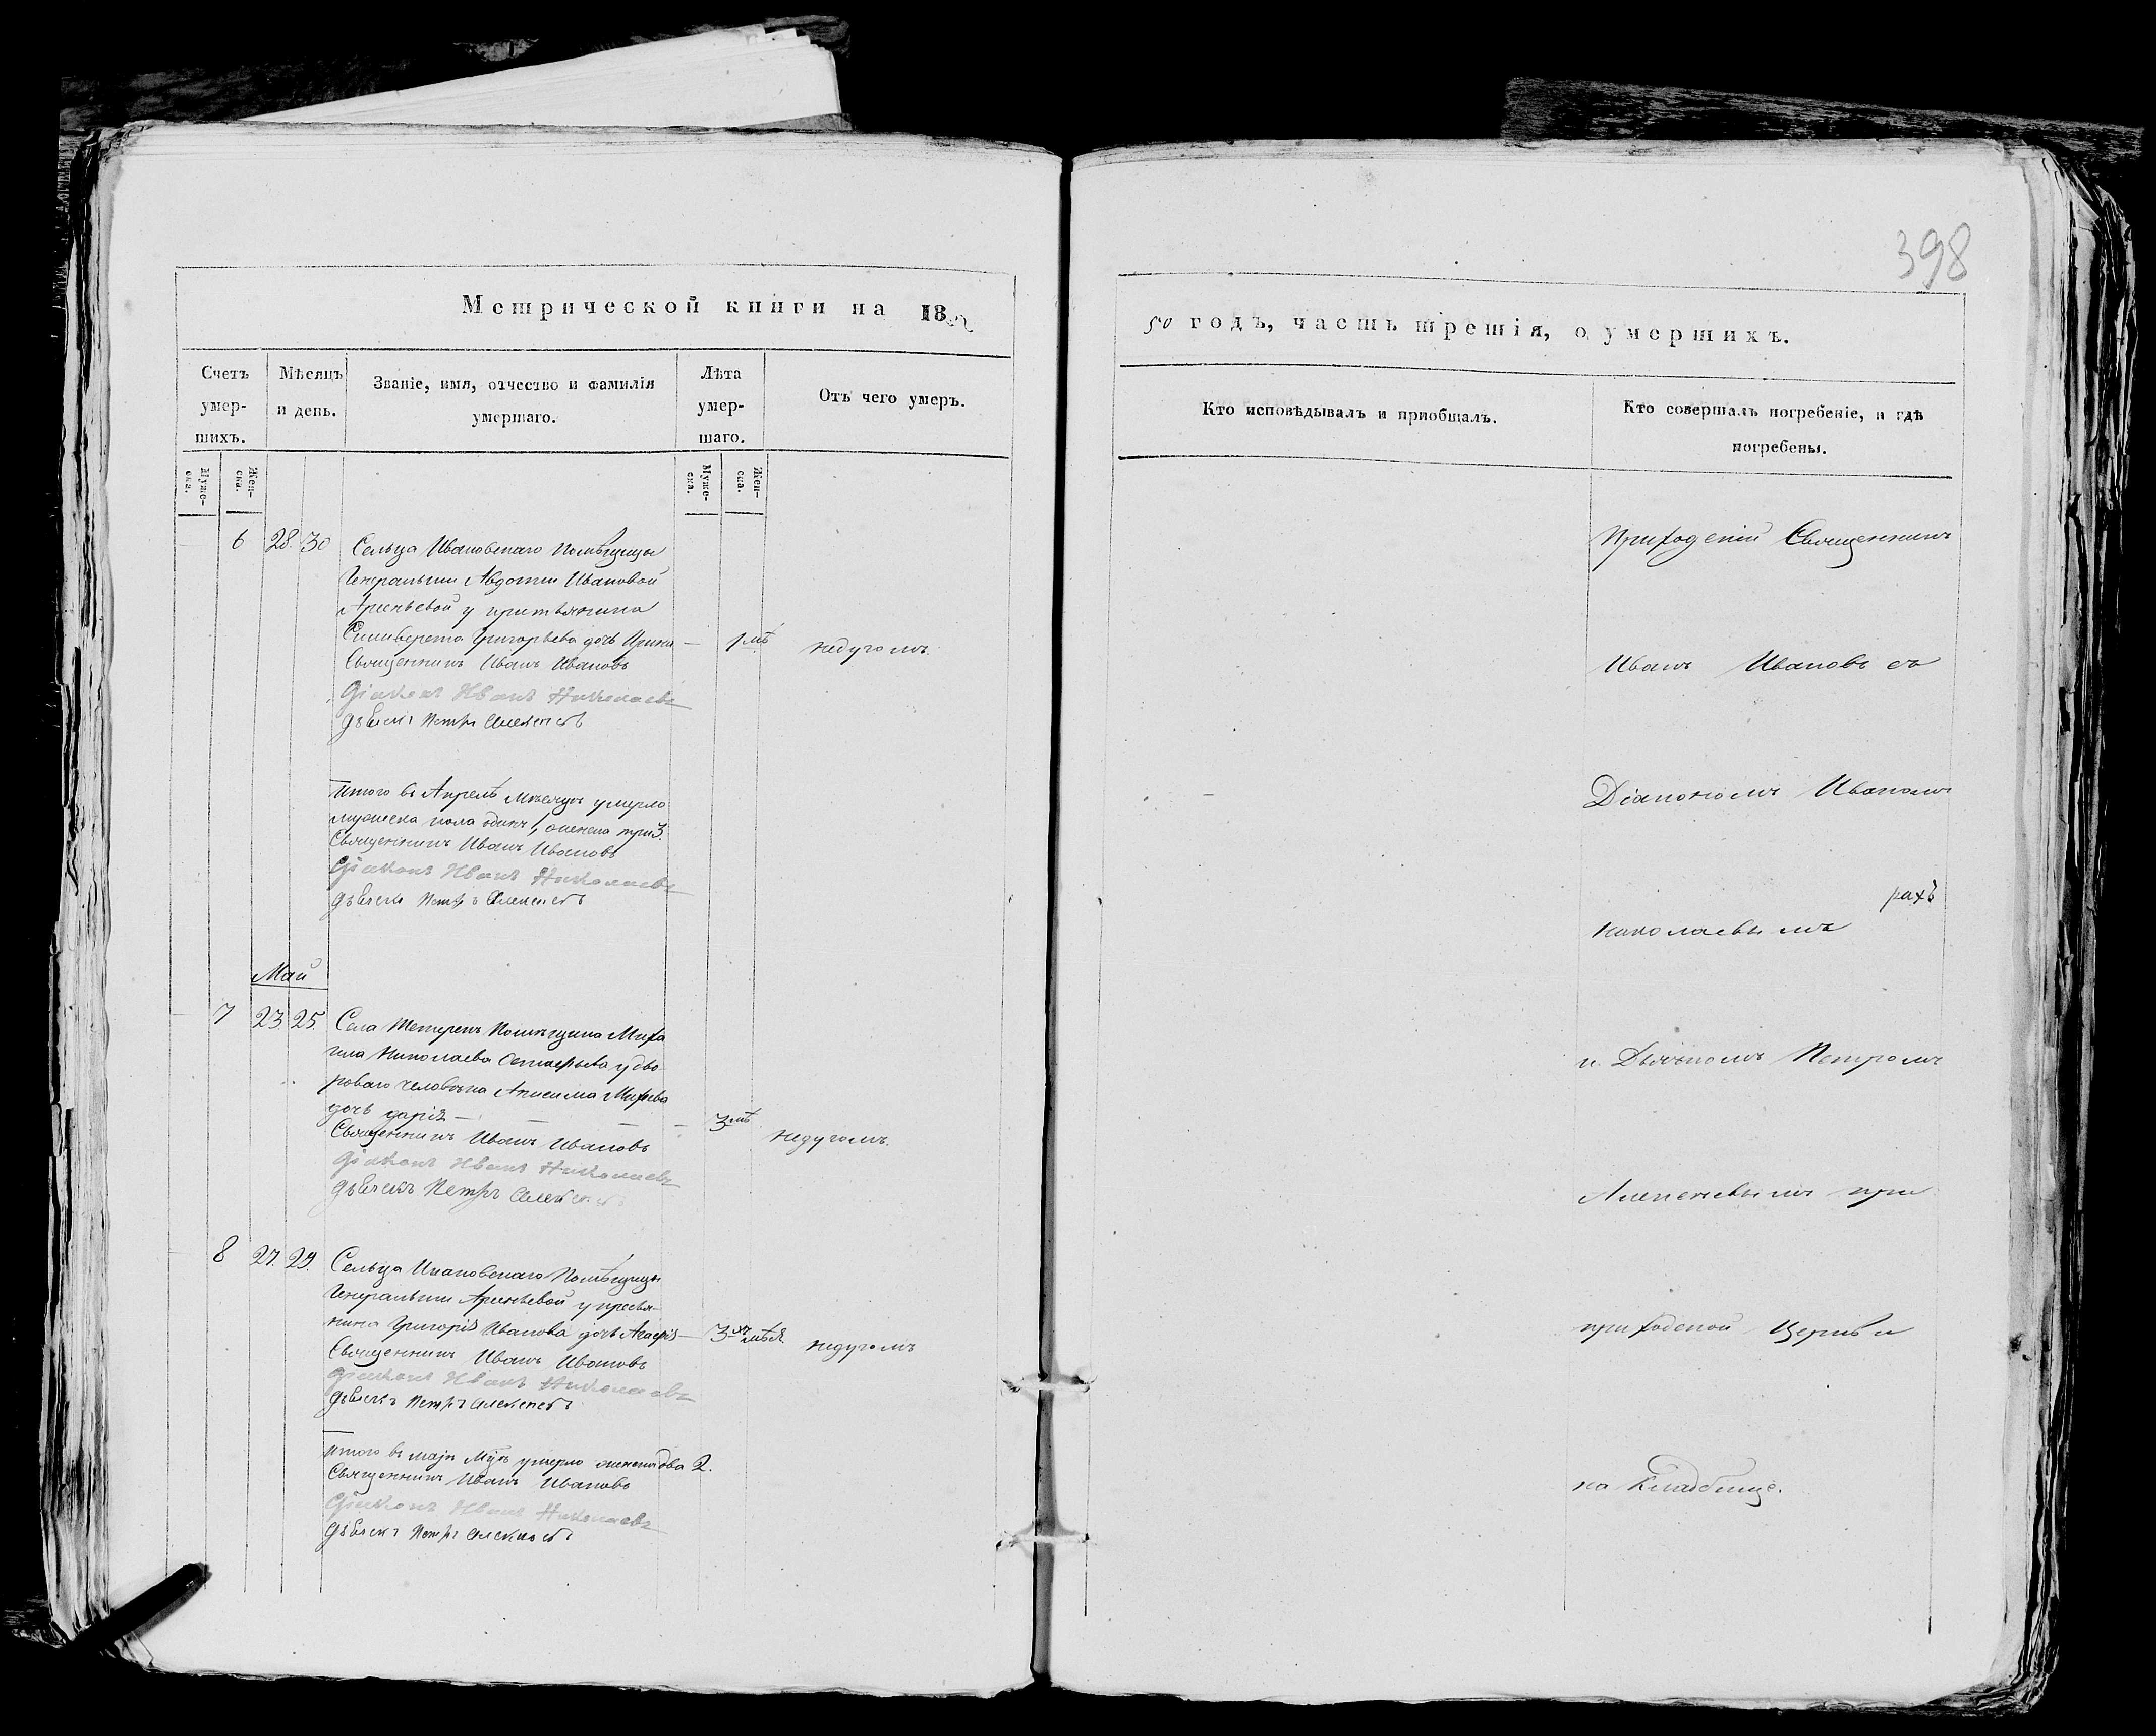 398
Метрической книги на 18
50 годъ, часть третія, о умершихъ.
Счетъ умер-шихъ.
Мѣсяцъ и день.
Званіе, имя, отчество и фамилія умершаго.
Лѣта умер-шаго.
Отъ чего умеръ.
Кто исповѣдывалъ и пріобщалъ.
Кто совершалъ погребеніе, и гдѣ погребены.
Муже-ска.
Жен-ска.
Муже-ска.
Жен-ска.
6 28 30 Сельца Ивановскаго Помѣщицы
Генеральши Авдотьи Ивановой
Арсеньевой у крестьянина
Григорьева дочь Ирина — 1 недугомъ.
Священникъ Иванъ Ивановъ
Діаконъ Иванъ Николаевъ
дьячекъ Петръ Алексѣевъ
Итого въ Апрелѣ Мѣсяцѣ умерло
мужеска пола одинъ 1, женска три 3.
Священникъ Иванъ Ивановъ
Діаконъ Иванъ Николаевъ
дьячекъ Петръ Алексѣевъ
Май
7 23 25 Села Помѣщика Миха
ила Николаева Остафьева у дво
роваго человѣка Анисима Михѣева
дочь дарія — 3 недугомъ.
Священникъ Иванъ Ивановъ
Діаконъ Иванъ Николаевъ
дьячекъ Петръ Алексѣевъ
8 27. 29. Сельца Ивановскаго Помѣщицы
Генеральши Арсеньевой у крестья-
нина Григорія Иванова дочь — 3 недугомъ
Священникъ Иванъ Ивановъ
Діаконъ Иванъ Николаевъ
дьячекъ Петръ Алексѣевъ
Итого въ маіѣ умерло женска два 2.
Священникъ Иванъ Ивановъ
Діаконъ Иванъ Николаевъ
дьячекъ Петръ Алексѣевъ
Приходскій Священникъ
Иванъ Ивановъ съ
Діакономъ Иваномъ
рахъ
Николаевымъ
и Дьячкомъ Петромъ
Алексѣевымъ при
приходской Церкви
на Кладбище.